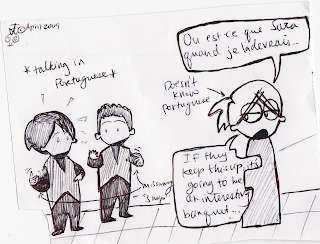 © April 2009
*talking in
Portuguese*
Ou est ce que Sara
quand je la devrais...
Doesn't
know
portuguese
missing
If they
keep this up, it's
going to be
an interesting
banquet...